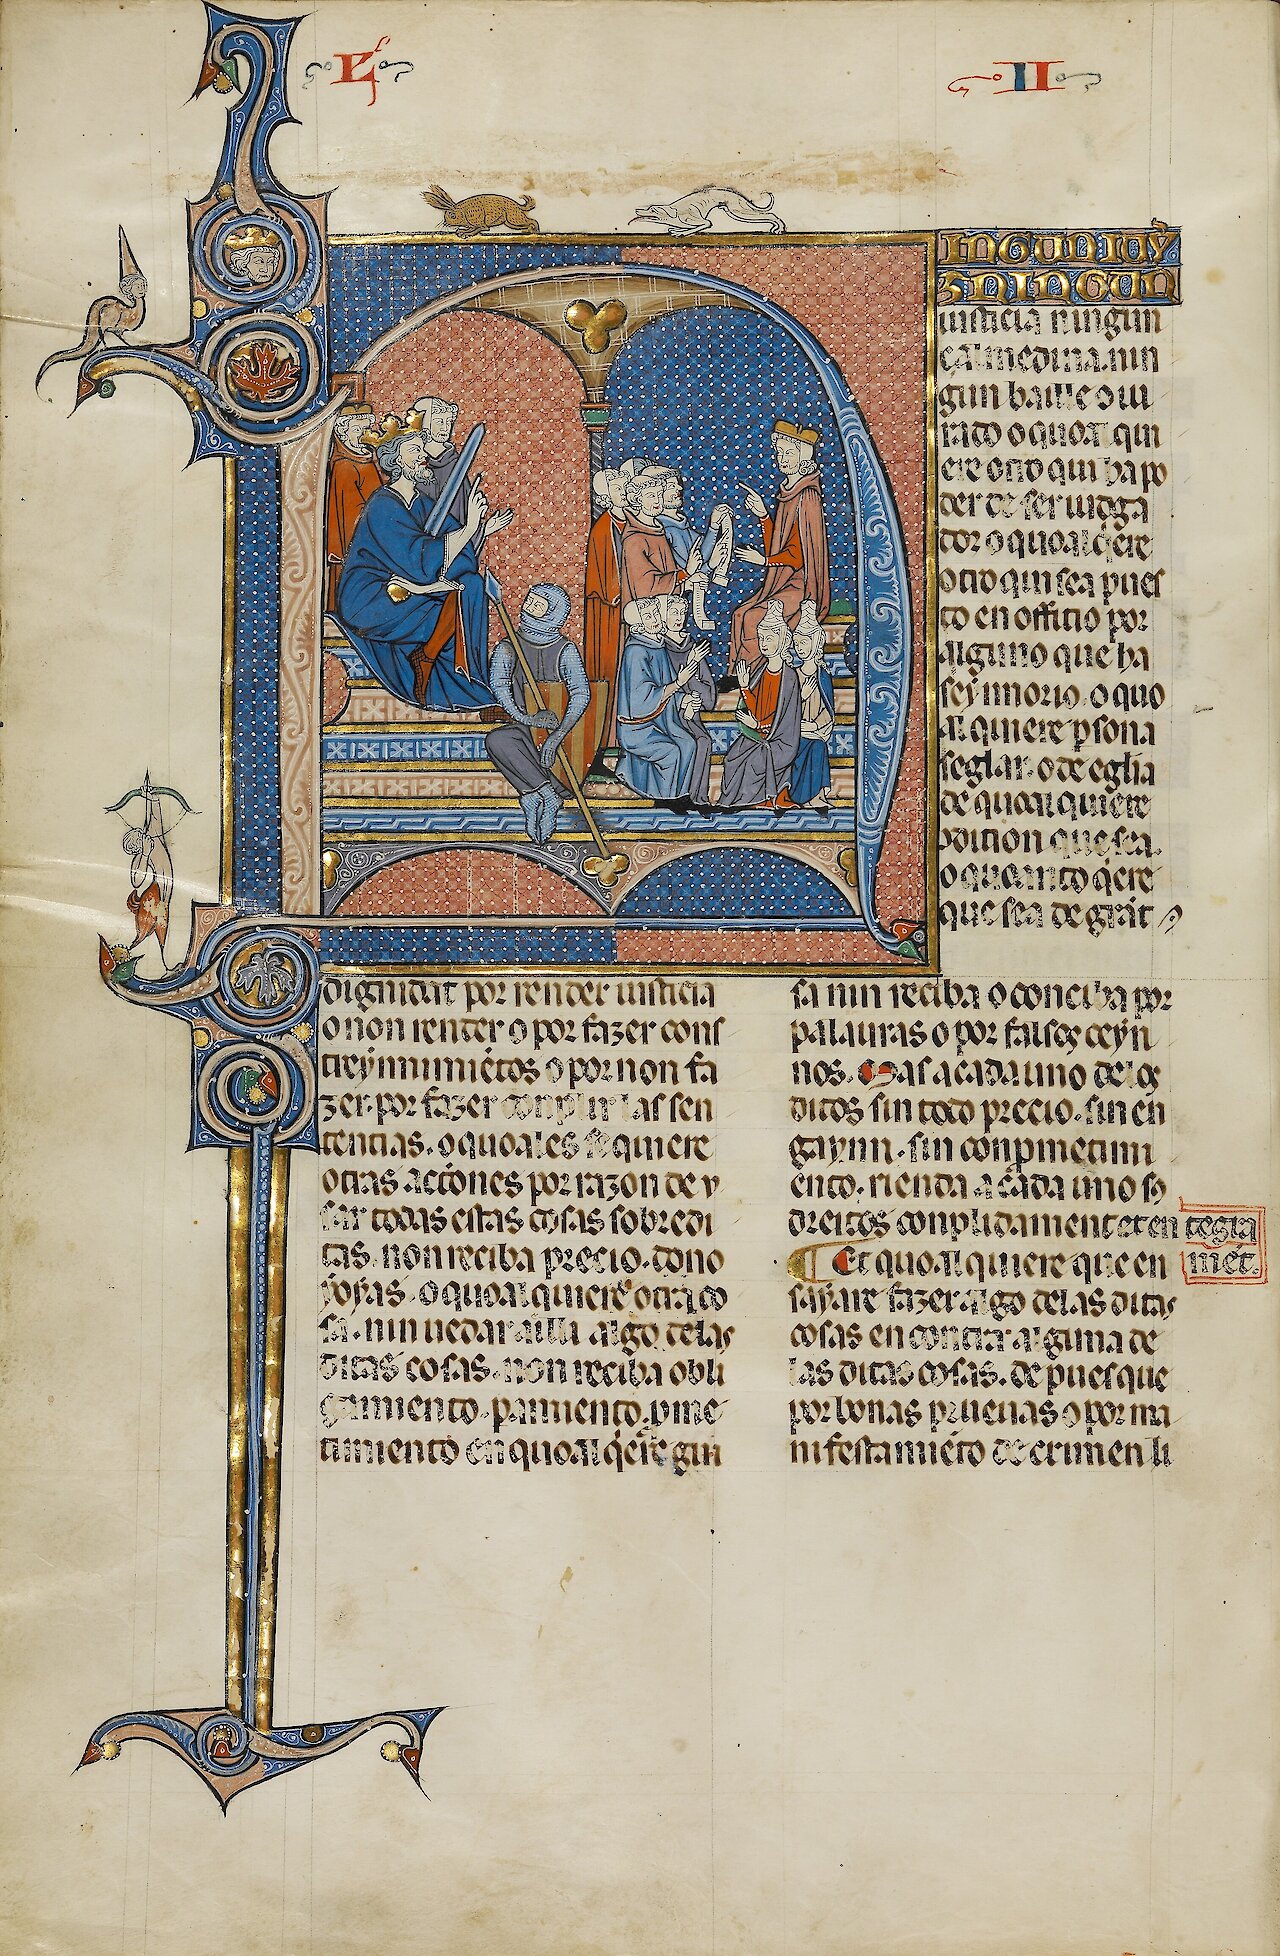 L II
INGUN IUY
Z NINGUN
iusticia ningun
çalmedina. nin
gun baille o iu
rado o quoal qui
ere otro qui ha po
der de ser iudga
dor o quoal q̇ere
otro qui sea pues
to en officio por
alguno que ha
seynnorio. o quo
al quiere psona
seglar. o de eglia
de quoal quiere
ɔdition que sea.
o quanto q̇ere
que sea de grāt
dignidat por render iusticia
o non render o por fazer cons
treynnimiētos o por non fa
zer. por fazer conplir las sen
tencias. o quoales se quiere
otras actiones por razon de y
sar todas estas cosas sobredi
tas. non reciba precio. dono
yoyas. o quoal quiere otra co
sa. nin uedar ailli algo de las
ditas cosas. non reciba obli
gamiento. pamiento. pme
timiento en quoal q̇ere gui
sa nin reciba o conciba por
palauras o por falsos ceyn
nos. Mas a cada uno de los
ditos sin todo precio. sin en
gaynn. sin conpmetimi
ento. rienda a cada uno so
dreitos conplidament et en tegra
mēt.
¶ Et quoal quiere que en
sayare fazer algo de las ditas
cosas en contra alguna de
las ditas cosas. de pues que
por bonas prueuas o por ma
nifestamiēto de crimen li